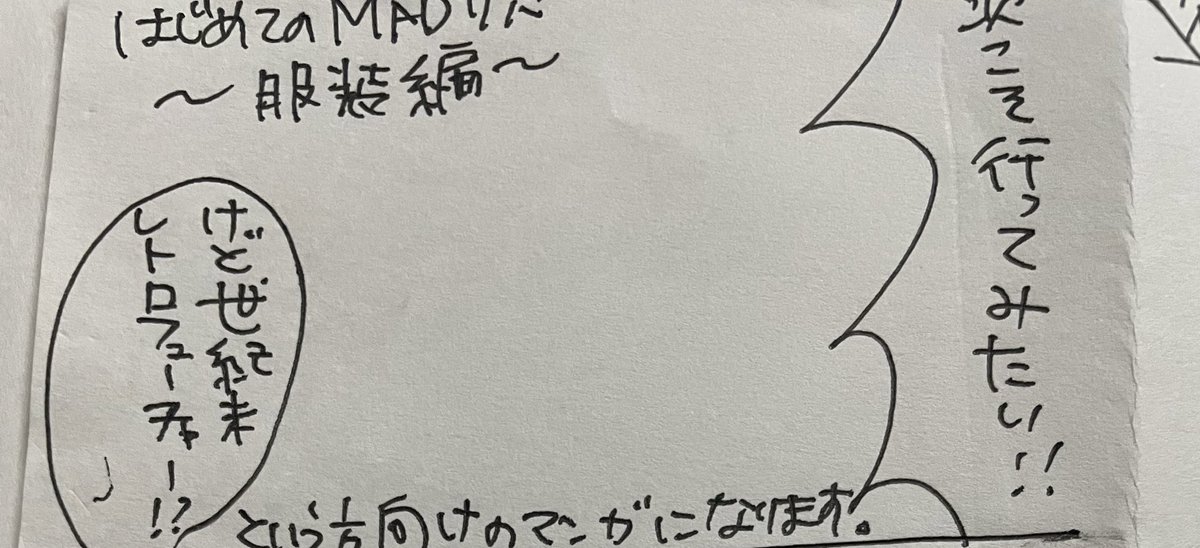 次こそ行ってみたい!!
はじめてのMAD
〜服装編〜
けど世紀末
レトロフューチャー!?
という方向けのマンガになります。